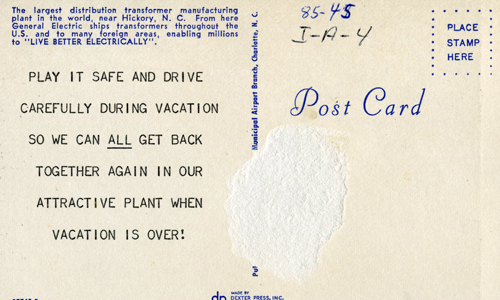 The largest distribution transformer manufacturing
plant in the world, near Hickory, N. C. From here
General Electric ships transformers throughout the
U.S. and to many foreign areas, enabling millions
to "LIVE BETTER ELECTRICALLY".
PLAY IT SAFE AND DRIVE
CAREFULLY DURING VACATION
SO WE CAN ALL GET BACK
TOGETHER AGAIN IN OUR
ATTRACTIVE PLANT WHEN
VACATION IS OVER!
Municipal Airport Branch, Charlotte, N. C.
85-45
I-A-4
Post Card
PLACE
STAMP
HERE
dp
MADE BY
DEXTER PRESS, INC.